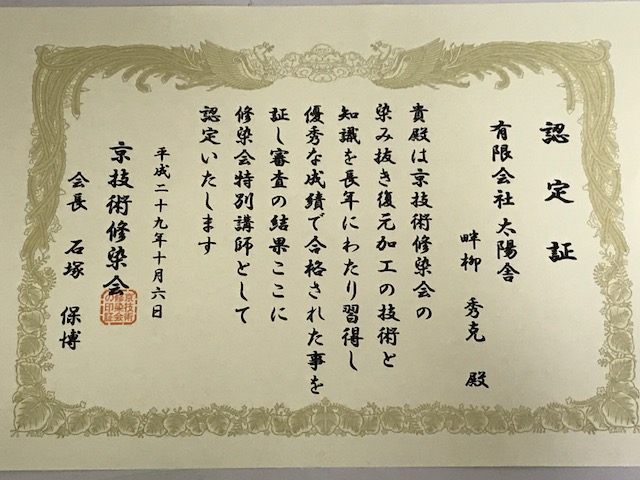 認定証
有限会社 太陽舎
畔柳 秀克 殿
貴殿は京技術修染会の
染み抜き復元加工の技術と
知識を長年にわたり習得し
優秀な成績で合格された事を
証し審査の結果ここに
修染会特別講師として
認定いたします
平成二十九年十月六日
京技術修染会
会長 石塚 保博
京技術
修染会
の印証